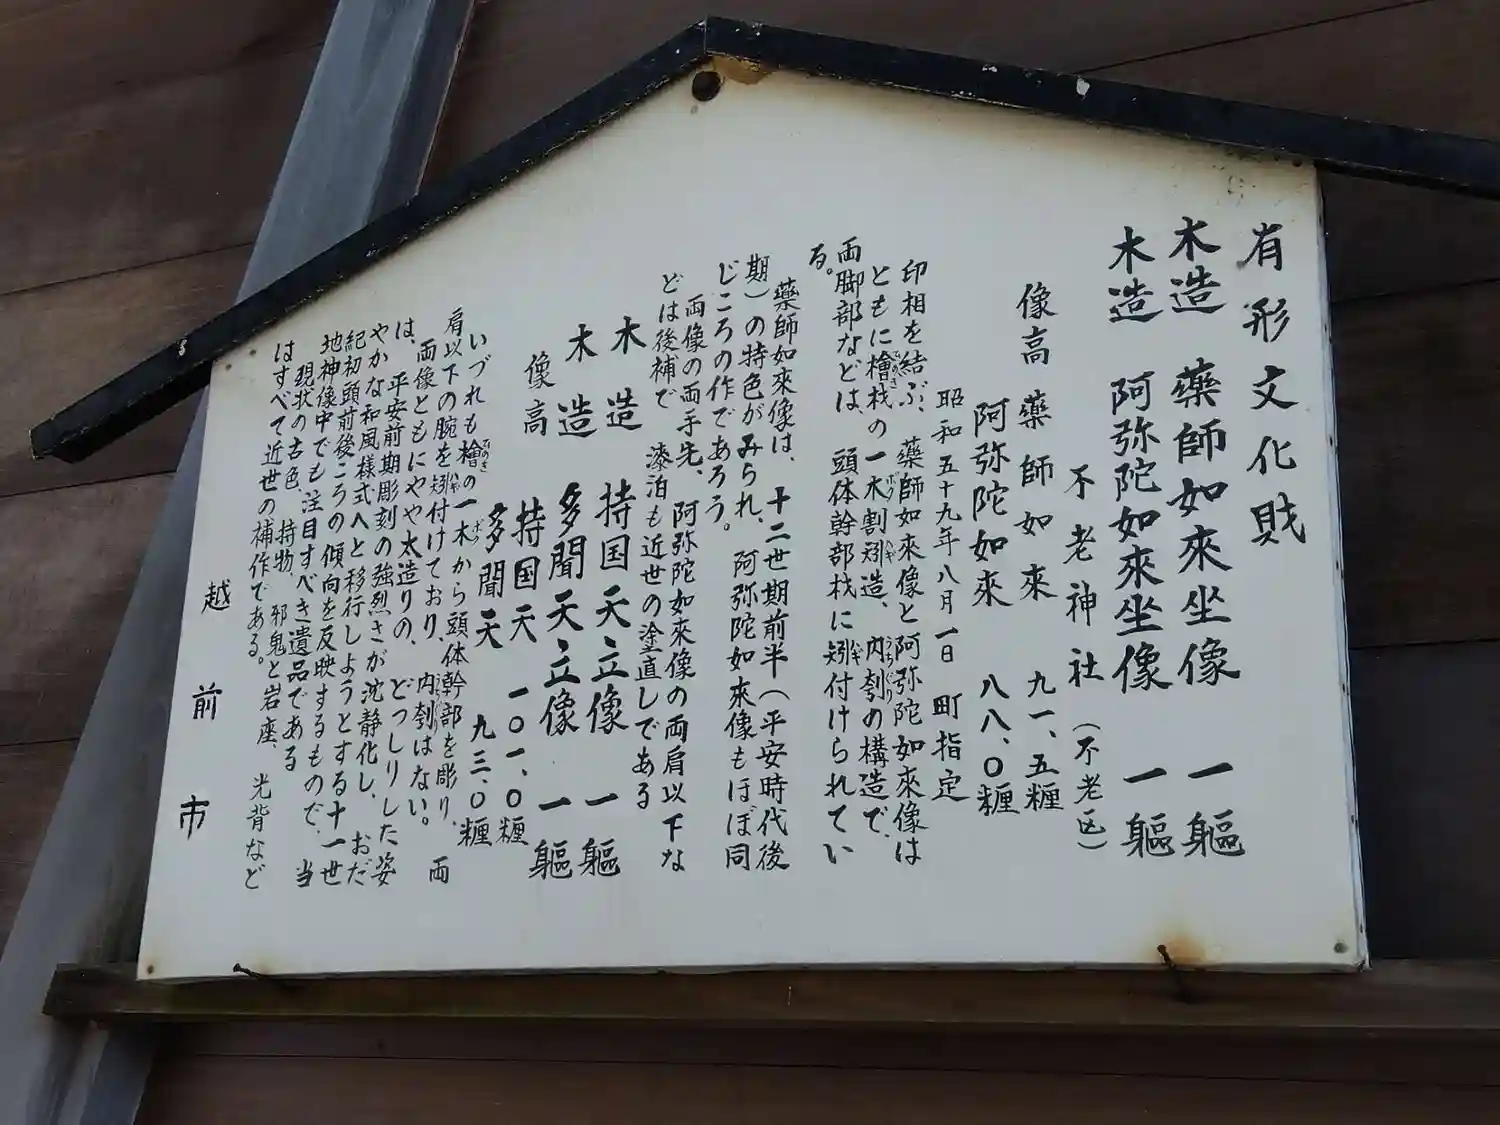 有形文化財
木造 藥師如來坐像 一軀
木造 阿弥陀如來坐像 一軀
不老神社 (不老区)
像高 藥師如來 九一、五糎
阿弥陀如來 八八、〇糎
昭和五十九年八月一日 町指定
印相を結ぶ、藥師如來像と阿弥陀如來像は
ともに檜材の一木割矧造、内刳の構造で、
両脚部などは、頭体幹部材に矧付けられてい
る。
藥師如來像は、十二世期前半(平安時代後
期)の特色がみられ、阿弥陀如來像もほぼ同
じころの作であろう。
両像の両手先、阿弥陀如來像の両肩以下な
どは後補で 漆泊も近世の塗直しである
木造 持国天立像 一軀
木造 多聞天立像 一軀
像高 持国天 一〇一、〇糎
多聞天 九三、〇糎
いづれも檜の一木から頭体幹部を彫り、両
肩以下の腕を矧付けており、内刳はない。
は、両像ともにやや太造りの、どっしりした姿
は、平安前期彫刻の強烈さが沈静化し、おだ
やかな和風様式へと移行しようとする十一世
紀初頭前後ころの傾向を反映するもので、当
地神像中でも注目すべき遺品である
現状の古色、持物、邪鬼と岩座、光背など
はすべて近世の補作である。
越前市